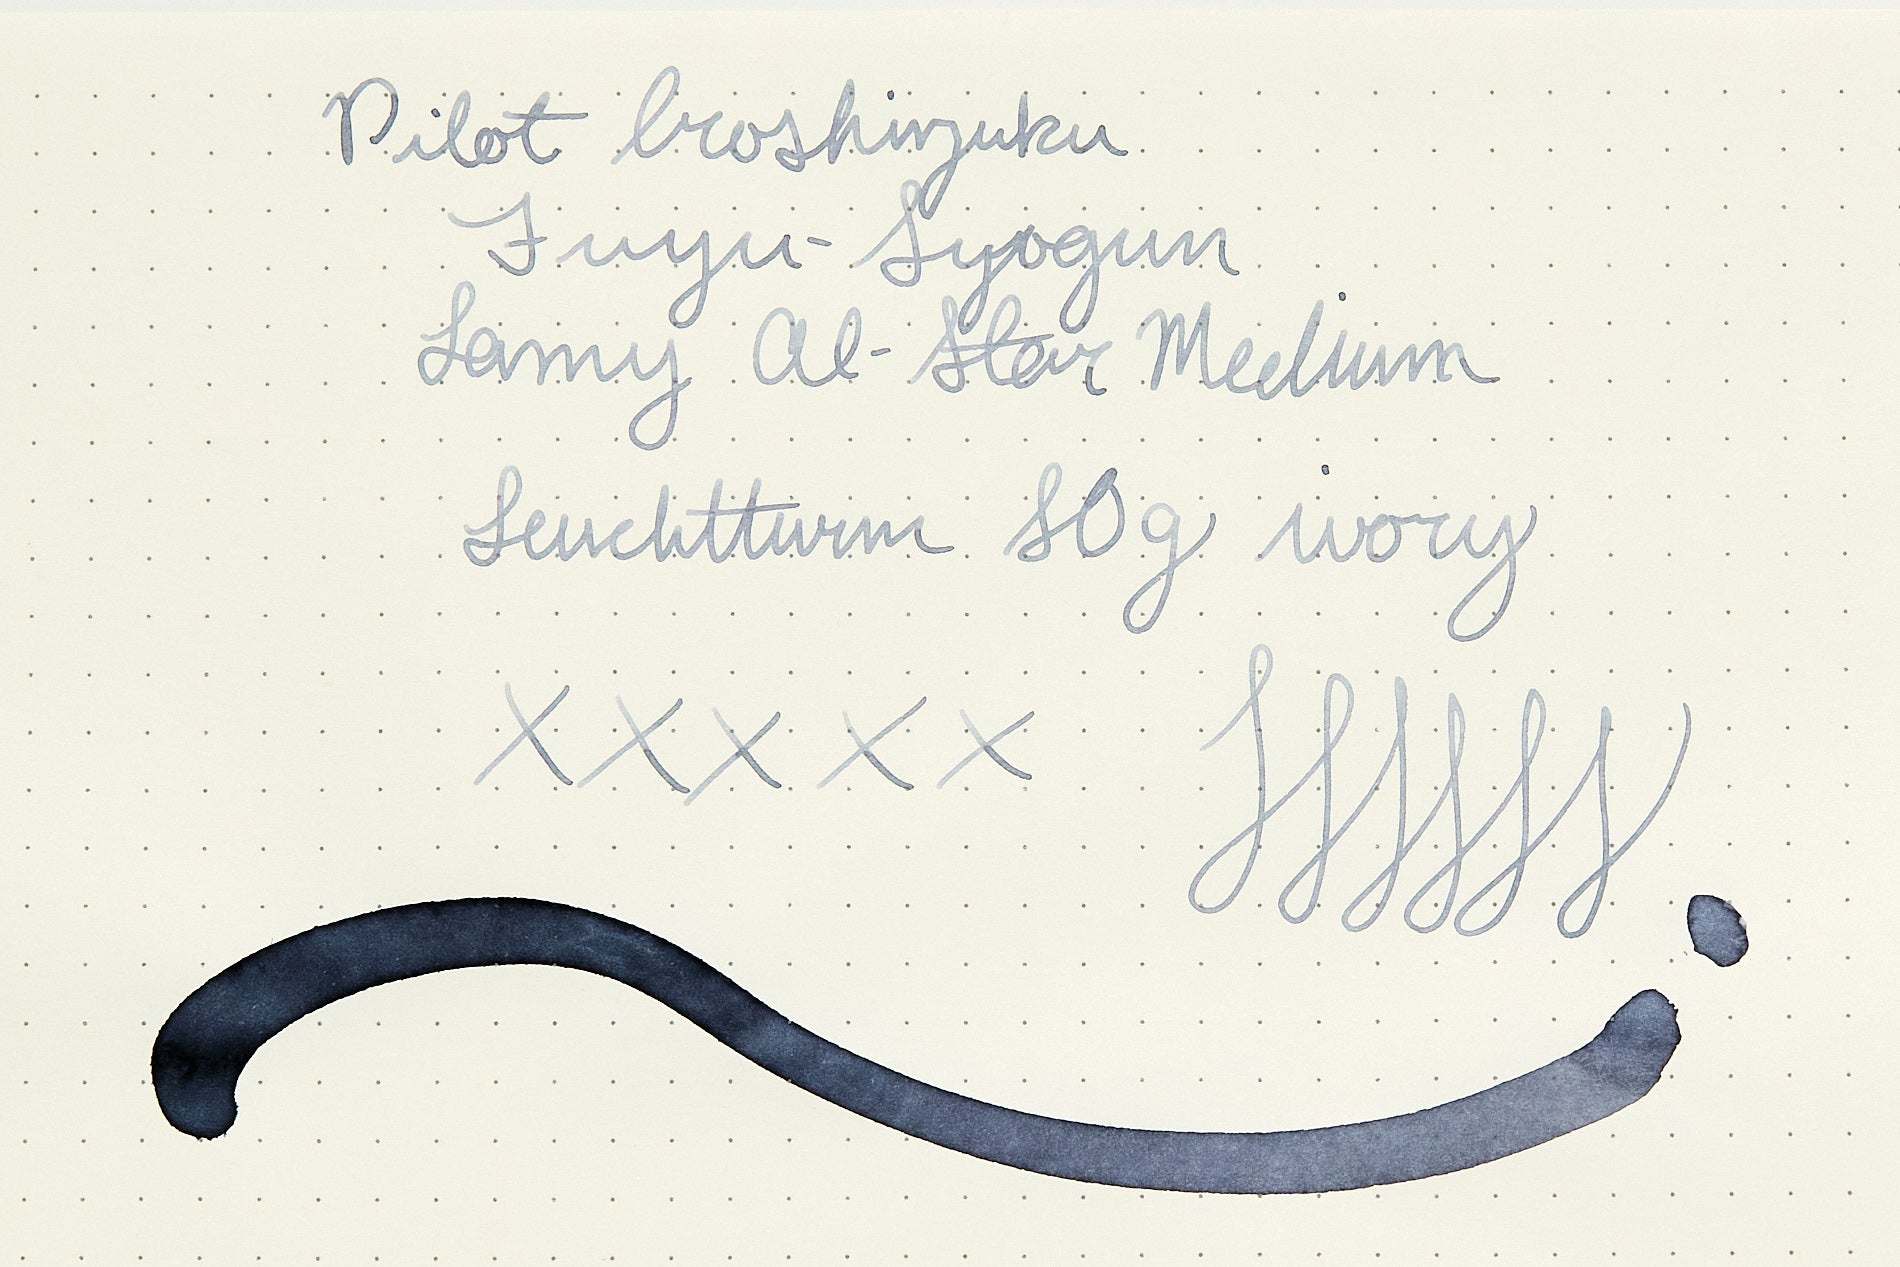 Pilot Iroshizuku
Fuyu-Syogun
Lamy Al-Star Medium
Leuchtturm 80g ivory
XXXXX